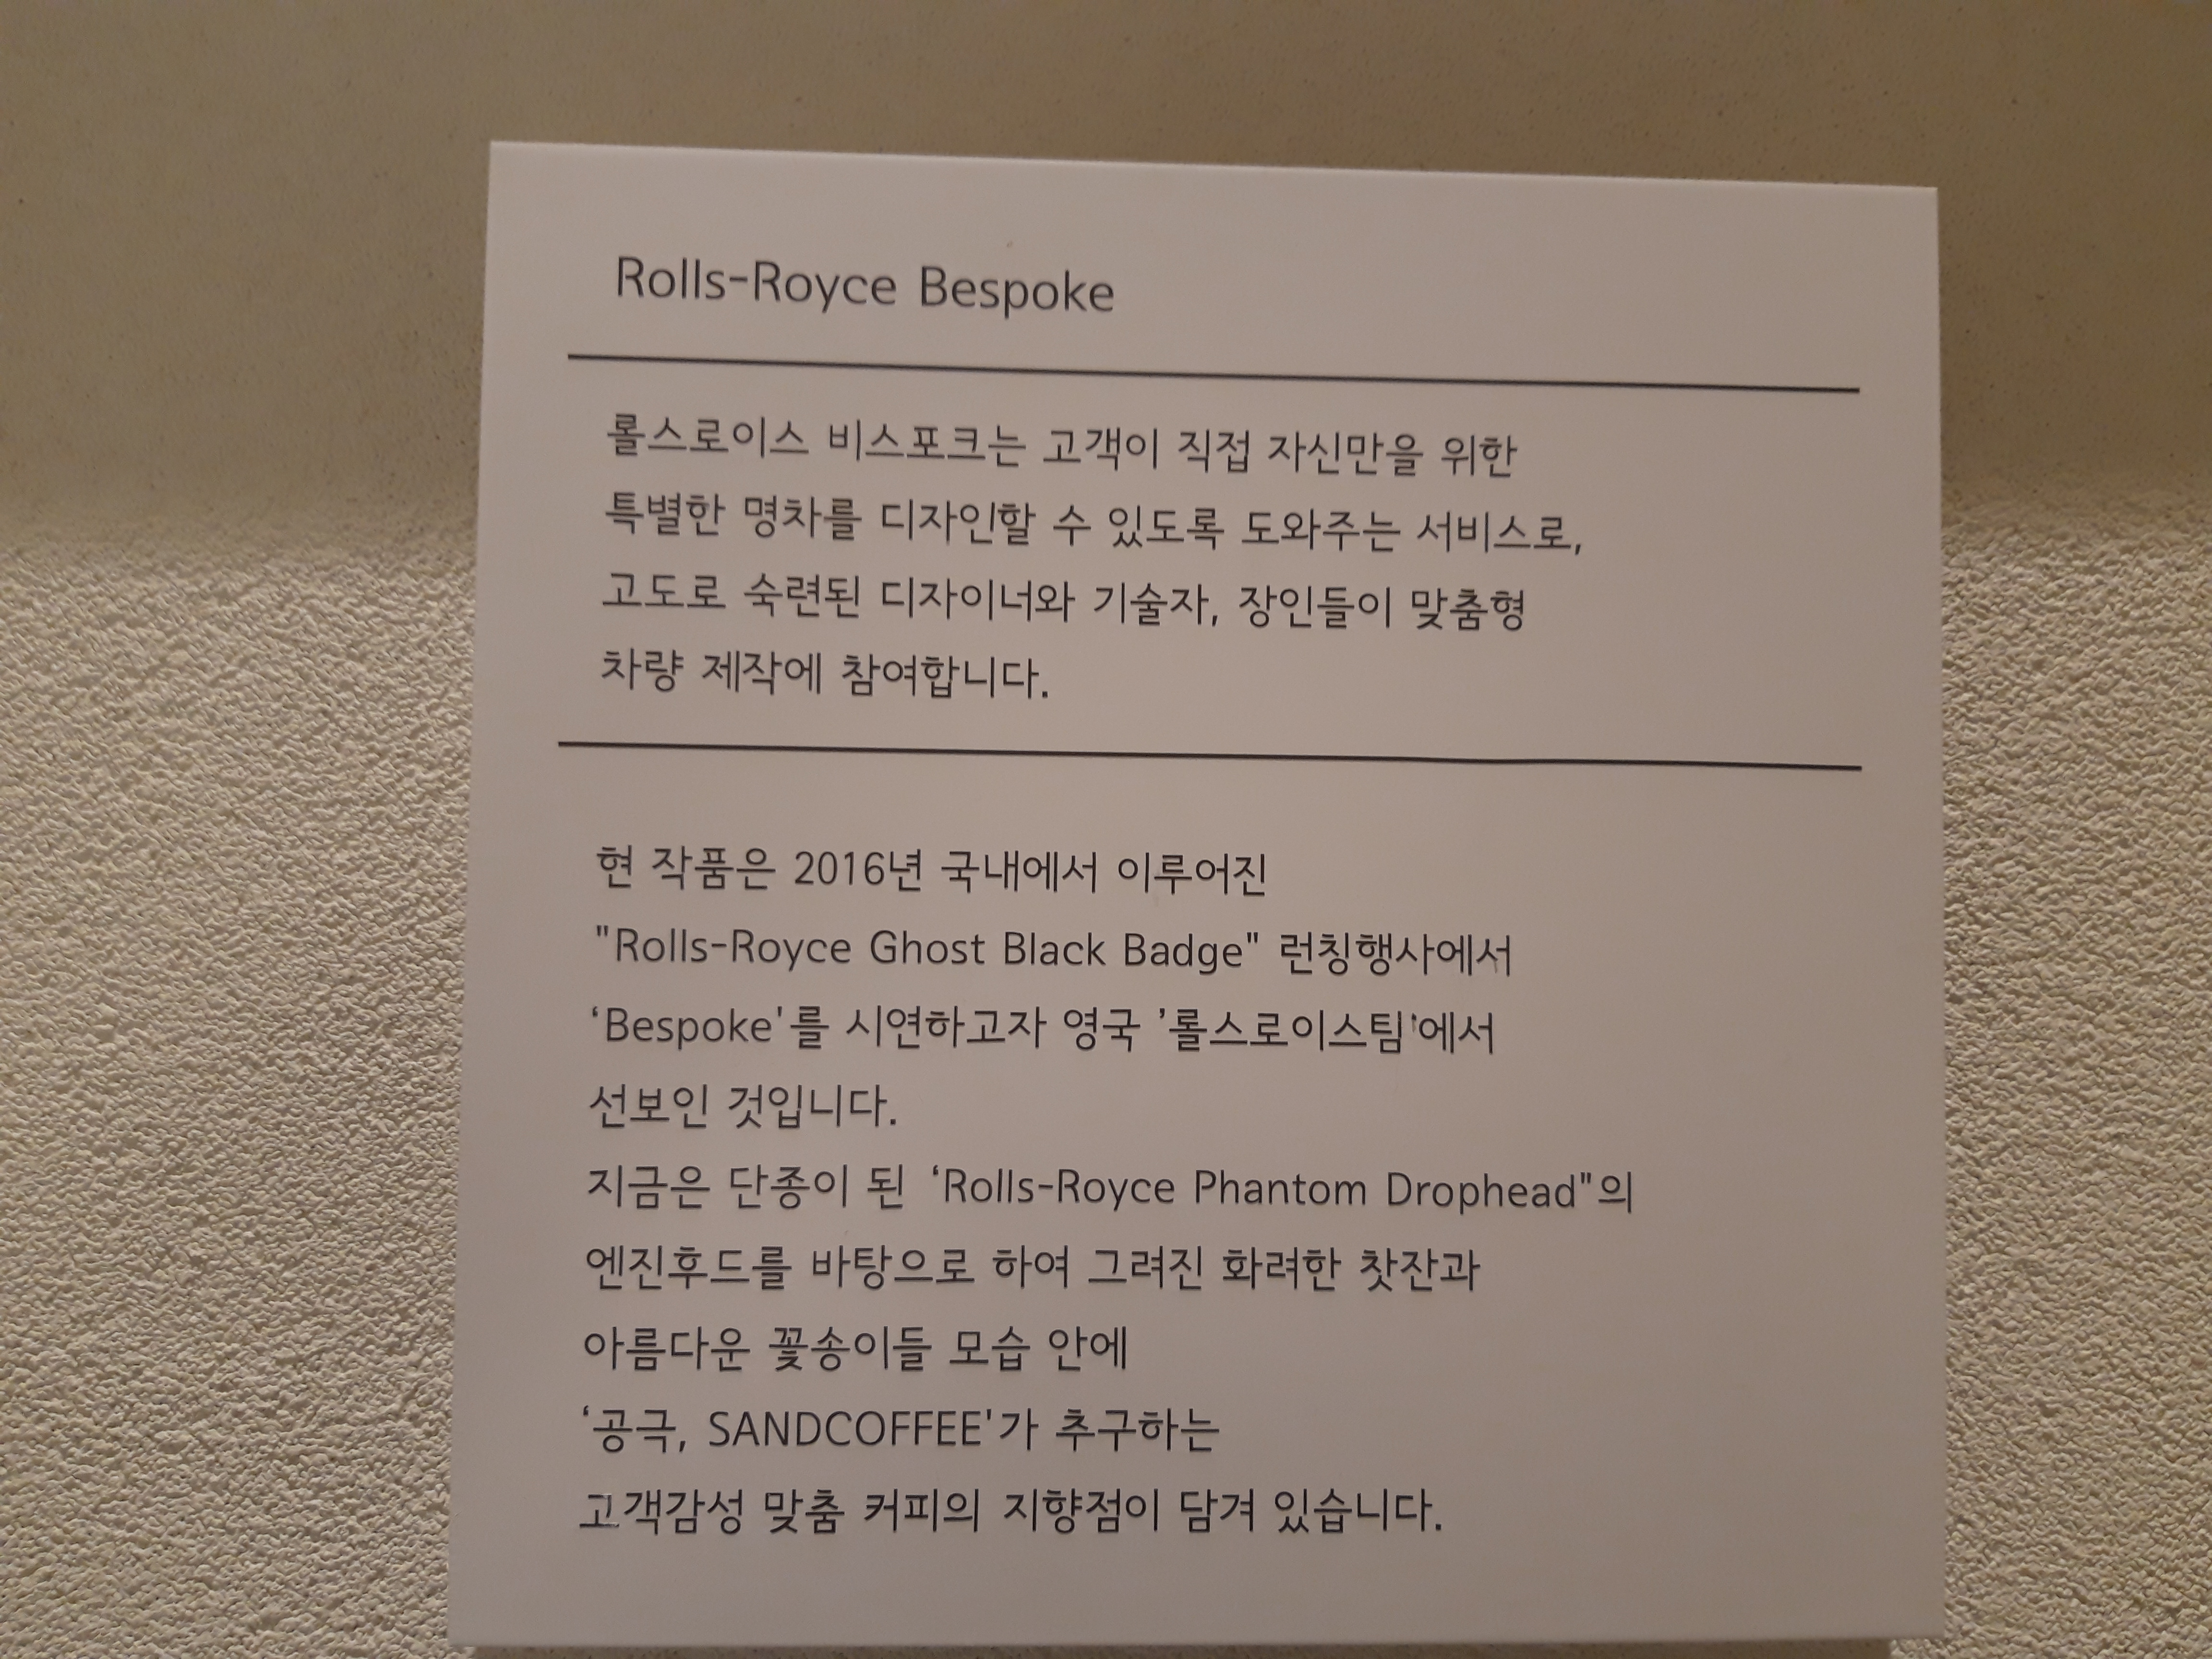 Rolls-Royce Bespoke
롤스로이스 비스포크는 고객이 직접 자신만을 위한
특별한 명차를 디자인할 수 있도록 도와주는 서비스로,
고도로 숙련된 디자이너와 기술자, 장인들이 맞춤형
차량 제작에 참여합니다.
현 작품은 2016년 국내에서 이루어진
"Rolls-Royce Ghost Black Badge" 런칭행사에서
‘Bespoke'를 시연하고자 영국 ’롤스로이스팀'에서
선보인 것입니다.
지금은 단종이 된 ‘Rolls-Royce Phantom Drophead"의
엔진후드를 바탕으로 하여 그려진 화려한 찻잔과
아름다운 꽃송이들 모습 안에
‘공극, SANDCOFFEE'가 추구하는
고객감성 맞춤 커피의 지향점이 담겨 있습니다.